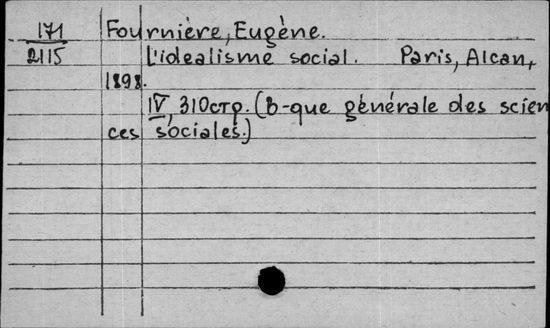 171 Fournière, Eugène.
2115 L'idealisme social. Paris, Alcan,
1898.
IV, 310стр. (B-que générale des scien
ces sociales.)